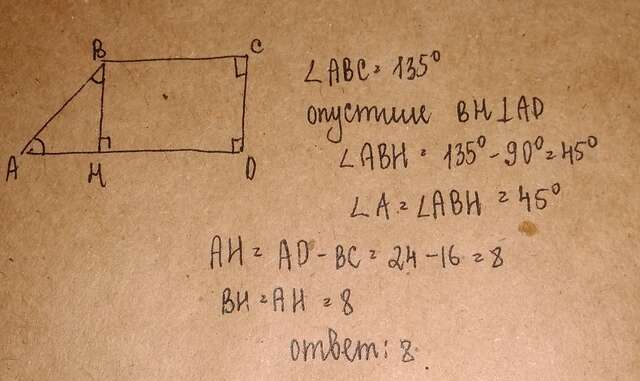 B C
A H D
∠ABC = 135°
опустим BH⊥AD
∠ABH = 135° - 90° = 45°
∠A = ∠ABH = 45°
AH = AD - BC = 24 - 16 = 8
BH = AH = 8
ответ: 8.